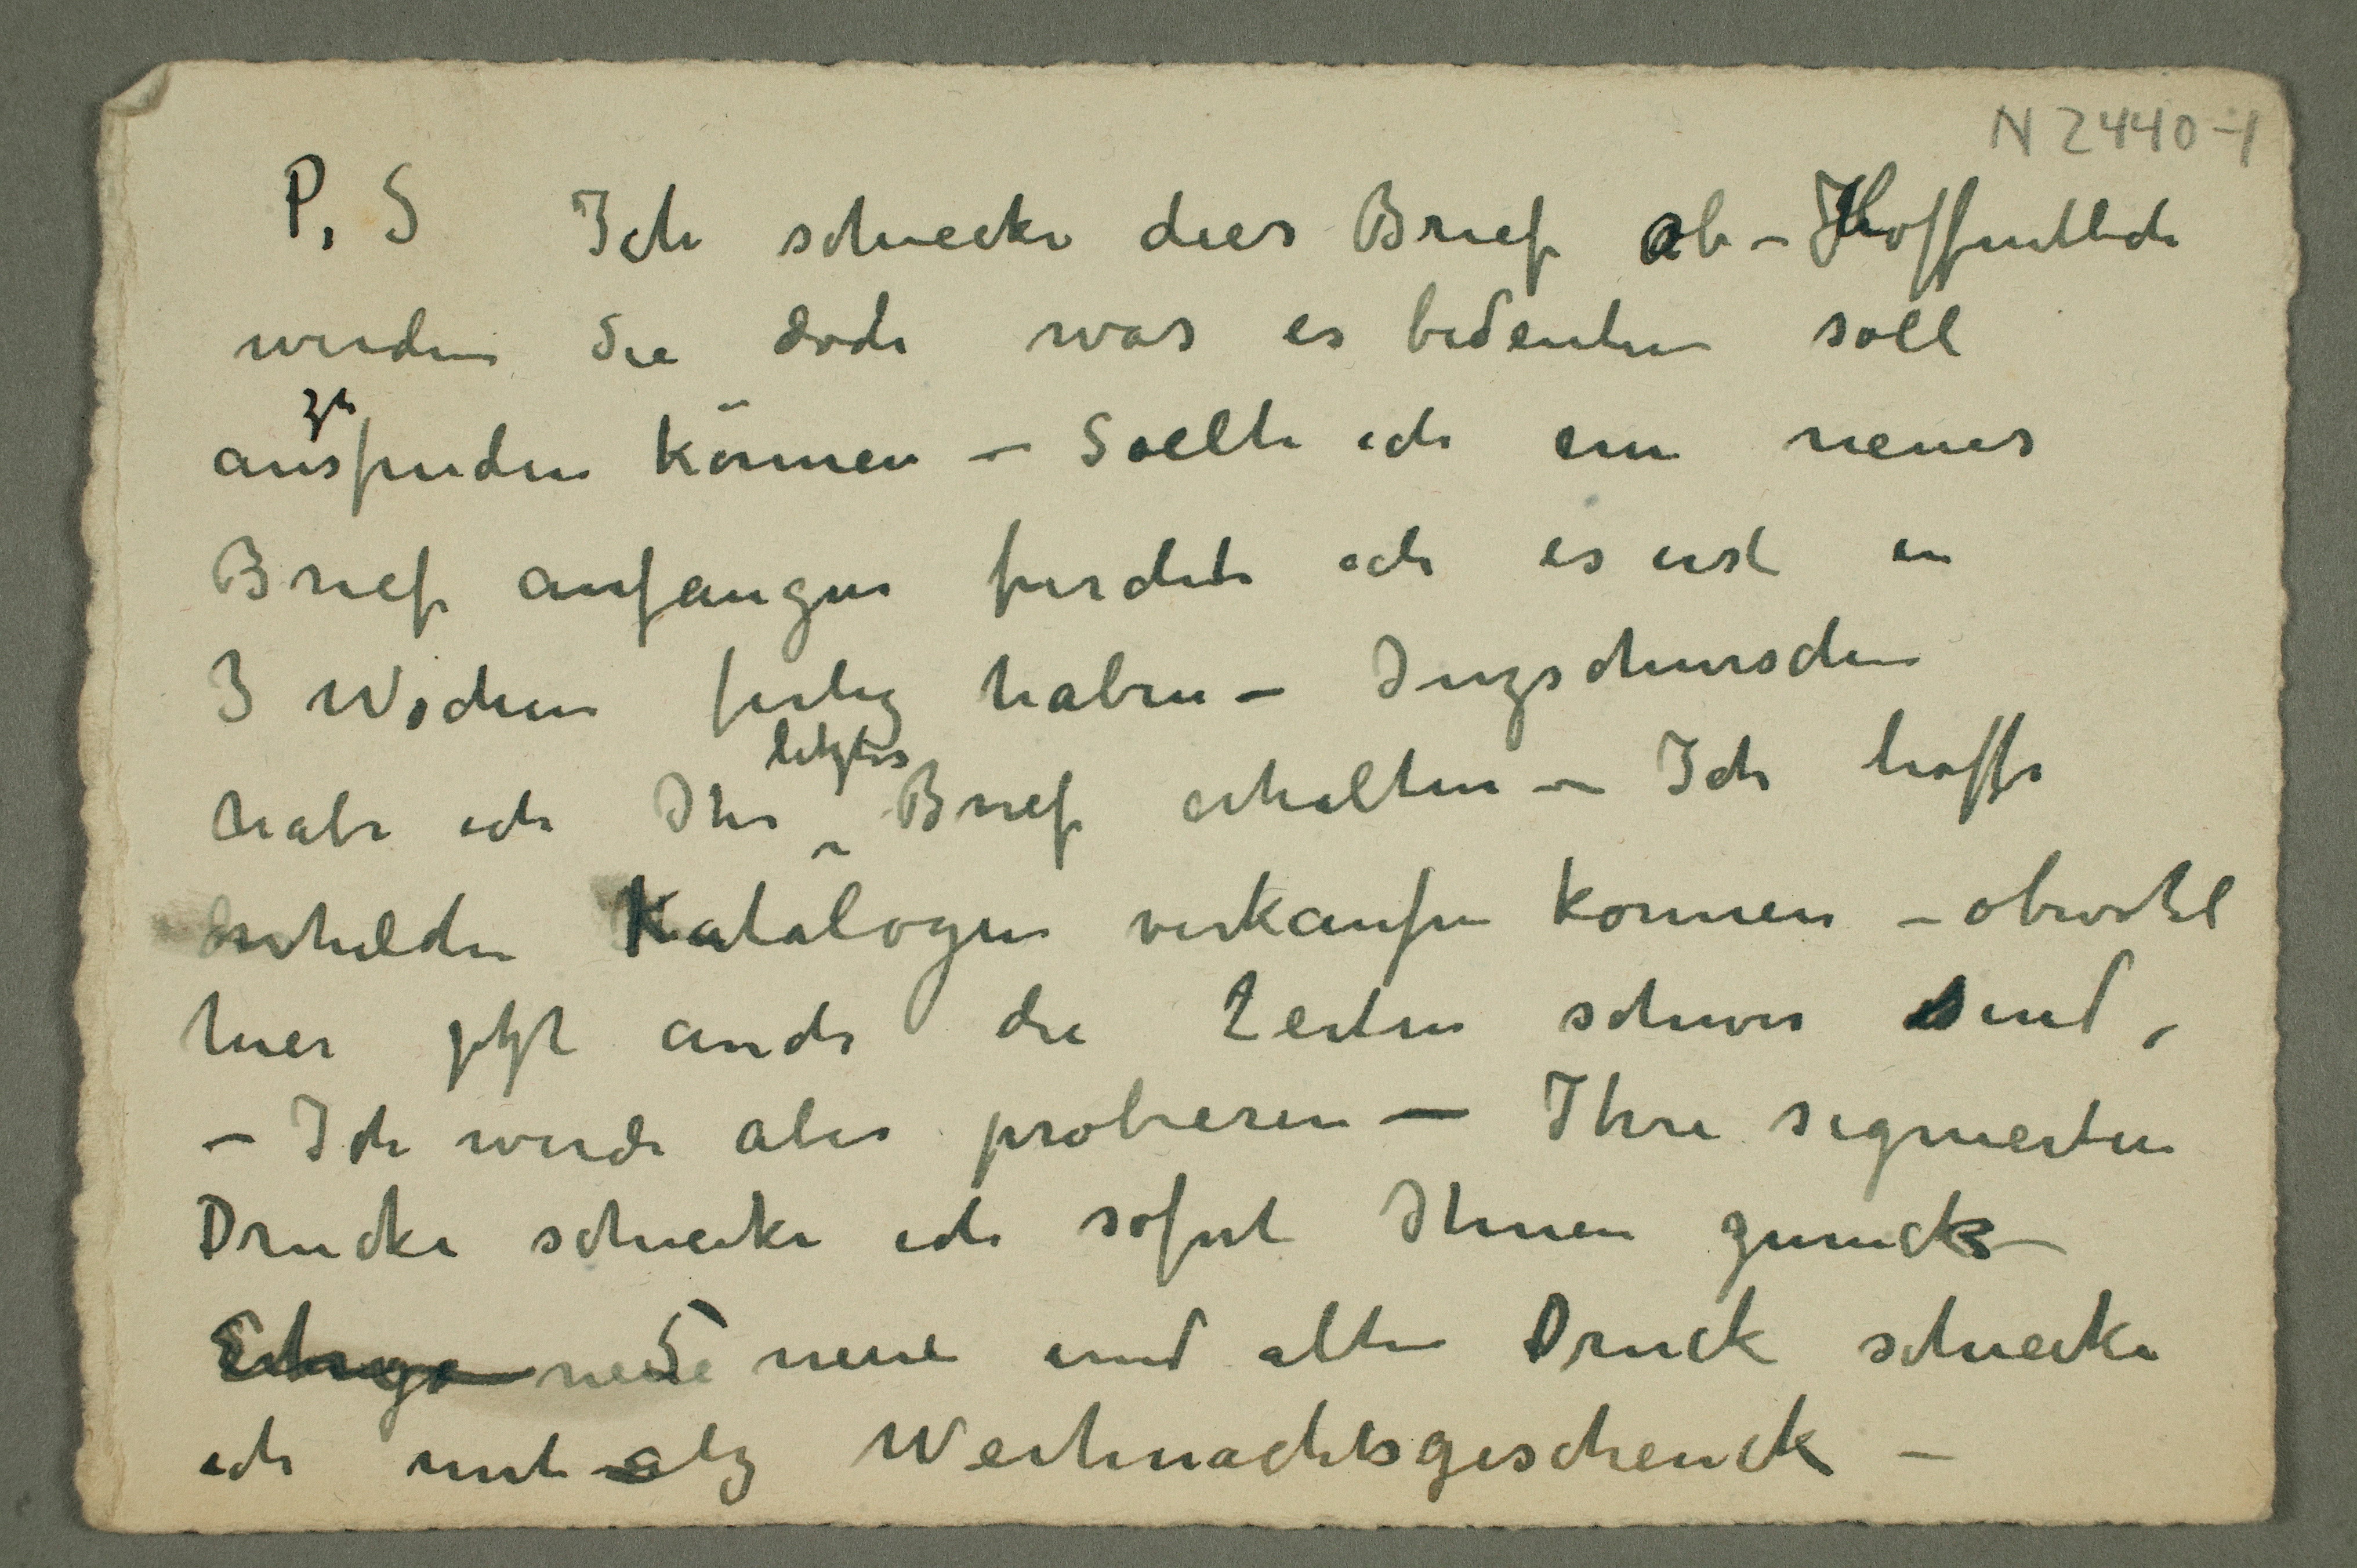 N 2440-1
P, S Ich schiecke dies Brief ab – Hoffentlich
werden Sie doch was es bedeuten soll
zu
ausfinden können – Sollte ich ein neues
Brief anfangen furchte ich es erst in
3 Wochen fertig haben – Inzschwischen
letztes
habe ich Ihr Brief erhalten – Ich hoffe
Katalogen verkaufen konnen – obwohl
hier jetzt auch die Zeiten schwer sind,
– Ich werde aber probieren – Ihre signierten
Drucke schiecke ich sofort Ihnen zuruck –
neue 5 neue und alten Druck schiecke
ich mit als Weihnachtsgeschenck –